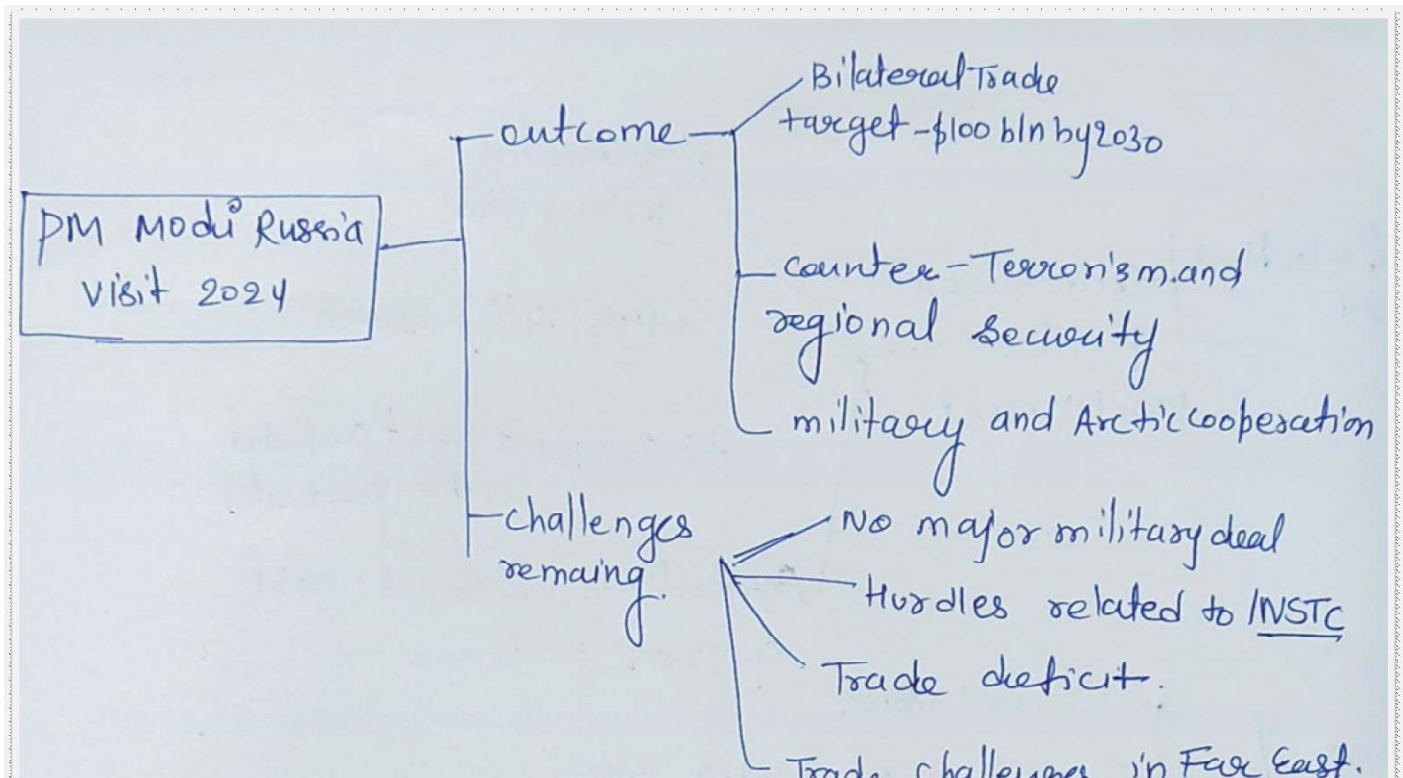 PM Modi Russia
visit 2024
outcome
Bilateral Trade
target - $100 bln by 2030
Counter-Terrorism.and
regional security
military and Arctic cooperation
challenges
remaing.
No major military deal
Hurdles related to INSTC
Trade deficit.
Trade challenges in Far East.